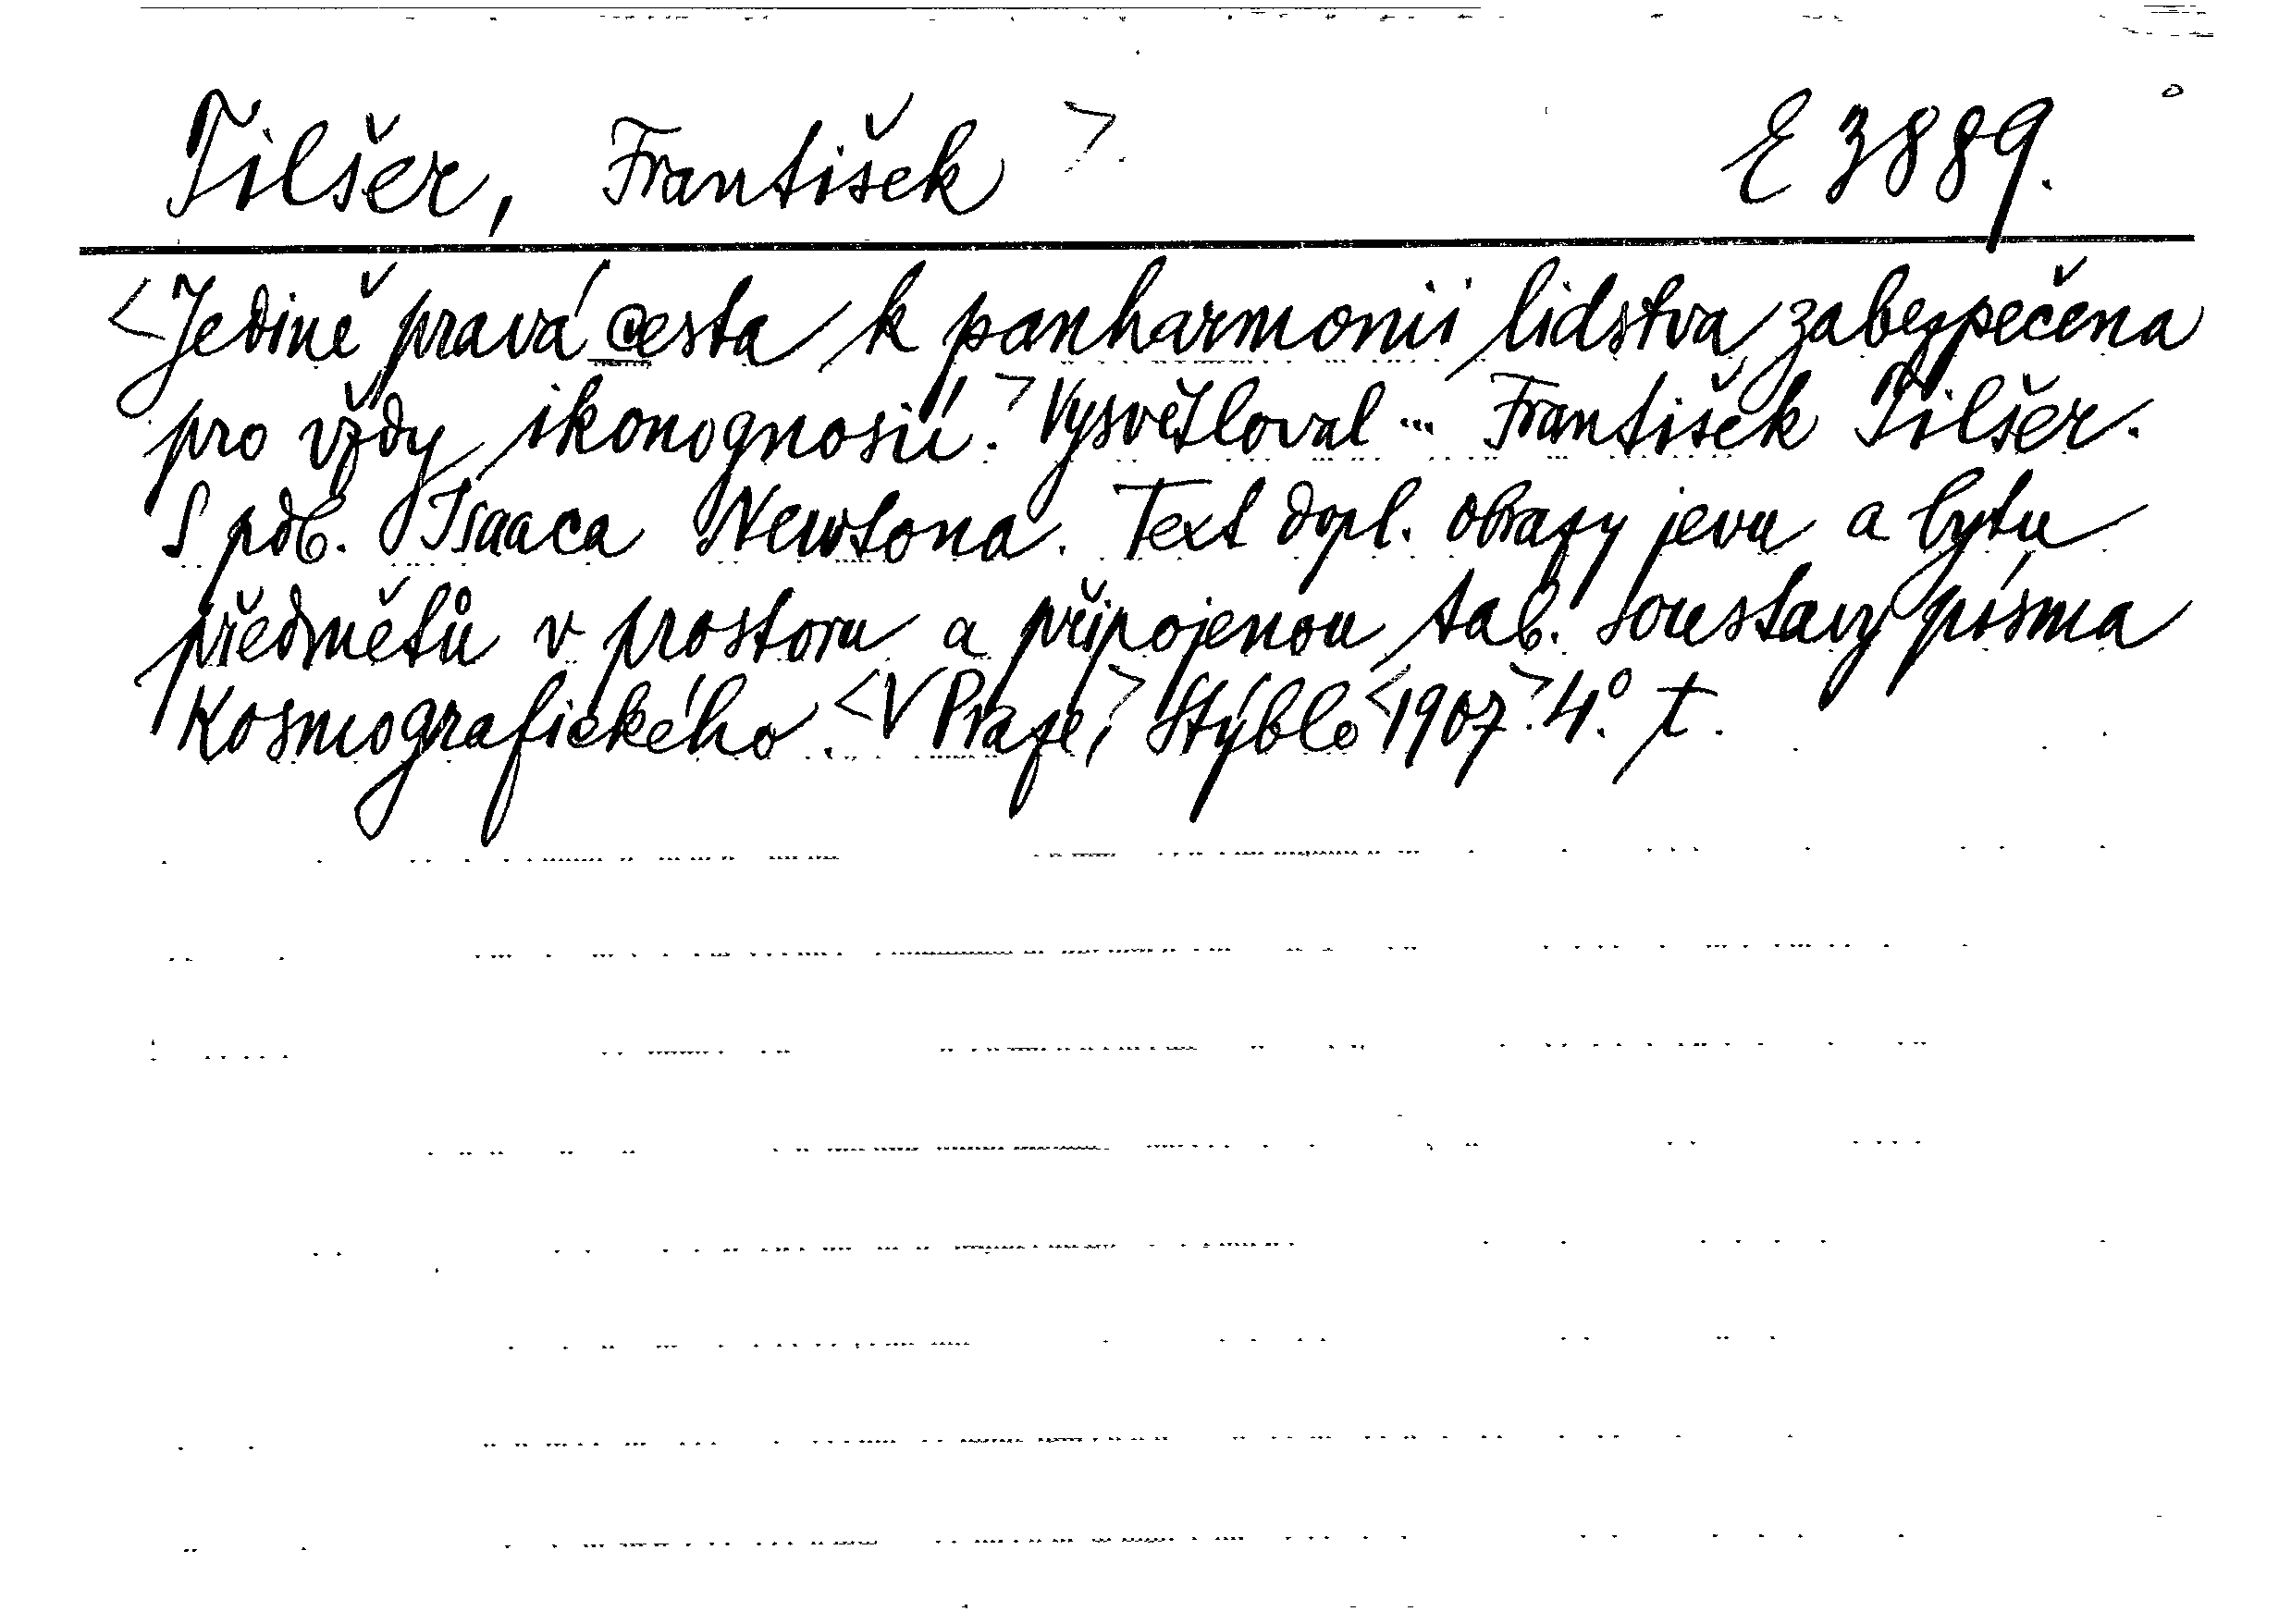 Tilšer, František > E 3889.
<Jedině pravá cesta k panharmonii lidstva zabezpečena
pro vždy ikonognosií.> Vysvětloval ... František Tilšer.
S pdb. Isaaca Newtona. Text dopl. obrazy jevu a bytu
předmětů v prostoru a připojenou tab. soustavy písma
Kosmografického. <V Praze,> Stýblo <1907>. 4°. t.